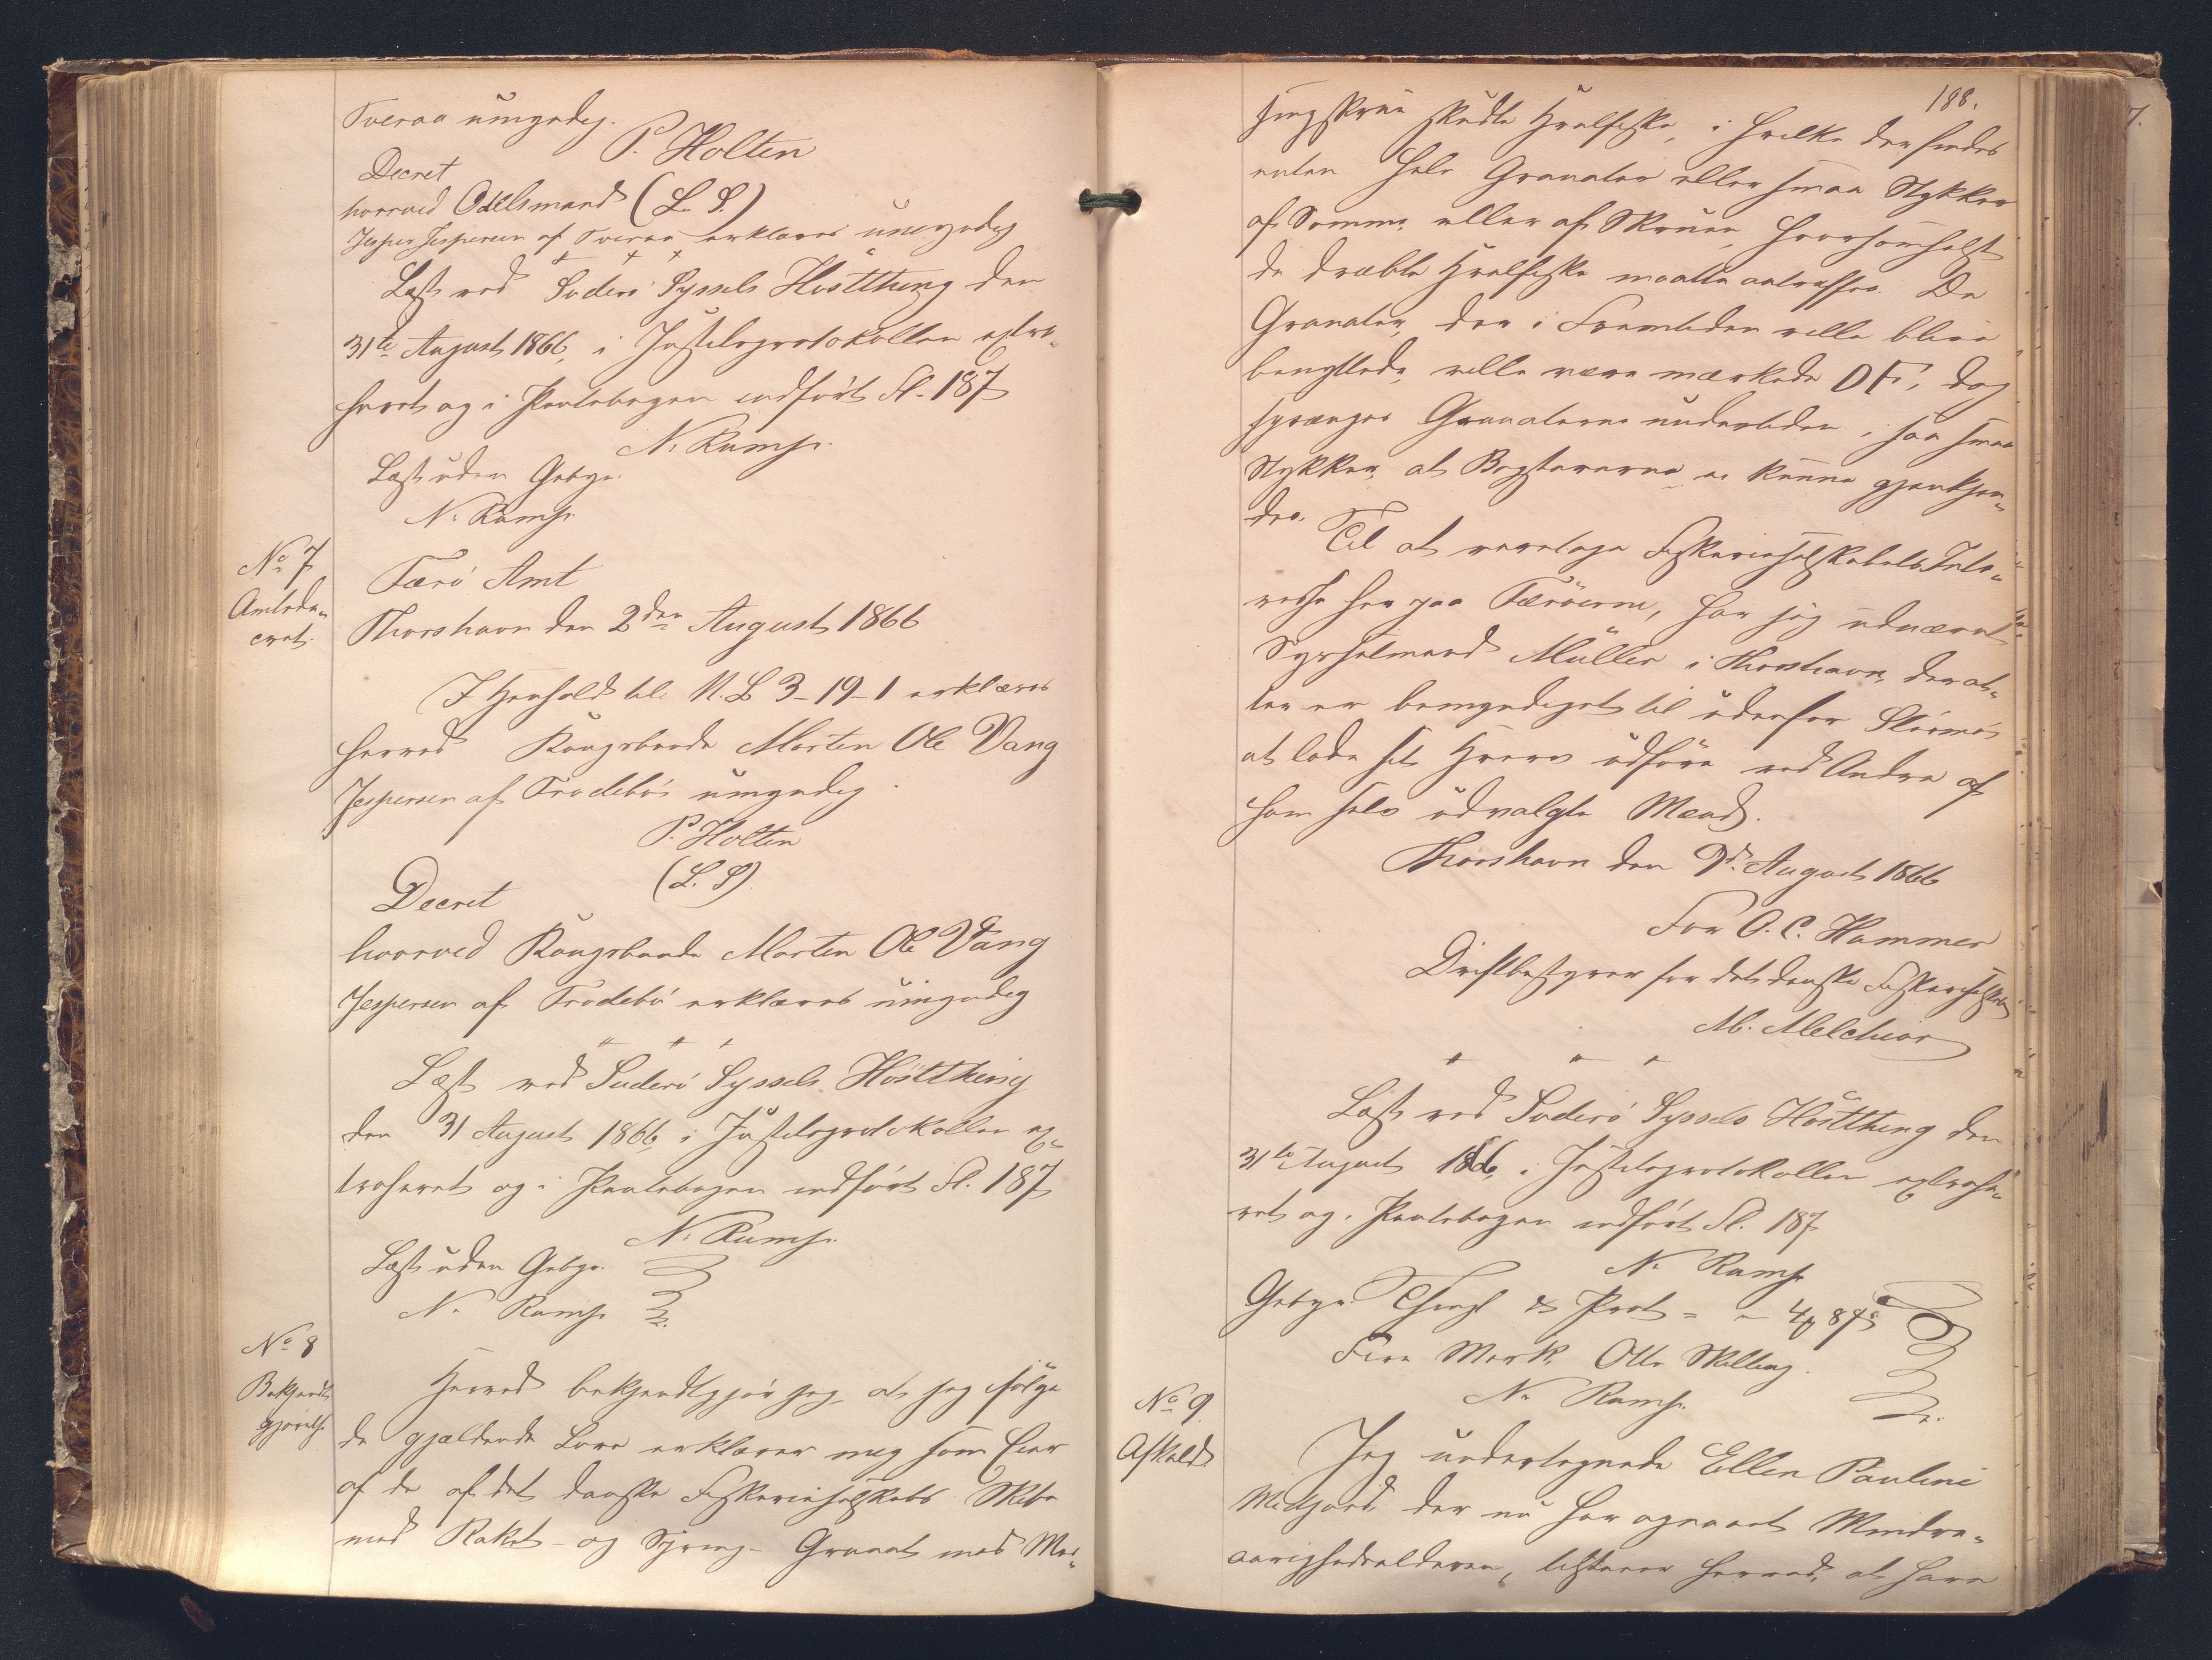 Tveraa umyndig.
P. Holten
Decret
hvorved Odelsmand (L. S.)
Jesper Jespersen af Tveraa erklæres umyndig
Læst ved Suderö Syssels Höstthing den
31te August 1866, i Justitsprotokollen extra-
heret og i Pantebogen indført Fol. 187
N. Rump.
Læst uden Gebyr.
N. Rump.
No 7
Amtsde-
cret.
Færö Amt
Thorshavn den 2den August 1866
I Henhold til N. L. 3-19-1 erklæres
herved Kongsbonde Morten Ole Vang
Jespersen af Frodebö umyndig.
P. Holten
(L. S)
Decret
hvorved Kongsbonde Morten Ole Vang
Jespersen af Frodebö erklæres umyndig
Læst ved Suderö Syssels Höstthing
den 31 August 1866, i Justitsprotokollen ex-
traheret og i Pantebogen indført Fol. 187
N. Rump.
Læst uden Gebyr.
N. Rump.
No 8
Bekjendt
gjørelse
Herved bekjendtgjør jeg, at jeg ifølge
de gjældende Love erklærer mig som Eier
af de af det danske Fiskeriselskabs Skibe
med Raket- og Spreng-Granat med
188.
skudte Hvalfiske, i hvilke der findes
enten hele Granater eller smaa Stykker
af Samme, eller af Skruen, hvorsomhelst
de dræbte Hvalfiske maatte antræffes. De
Granater, der i Fremtiden ville blive
benyttede, ville være mærkede DF, dog
sprænges Granaterne undertiden i saa smaa
Stykker, at Bogstaverne ei kunne gjenkjen-
des.
Til at varetage Fiskeriselskabets Inte-
resse her paa Færöerne, har jeg udnævnt
Sysselmand Müller i Thorshavn, der at-
ter er bemyndiget til udenfor Strömö
at lade sit Hverv udføre ved Andre af
ham selv udvalgte Mænd.
Thorshavn den 9d August 1866
For O. C. Hammer
Driftbestyrer for det danske Fiskeriselskab
M. Melchior
Læst ved Suderö Syssels Höstthing den
31te August 1866, i Justitsprotokollen extrahe-
ret og i Pantebogen indført Fol. 187
N. Rump
Gebyr. Thingl & Prot = - 4 # 8 s
Fire Mark Otte Skilling.
N. Rump.
No 9.
Afkald
Jeg undertegnede Ellen Pauline
Midjord, der nu har opnaaet Mindre-
aarighedsalderen, tilstaaer herved, at have